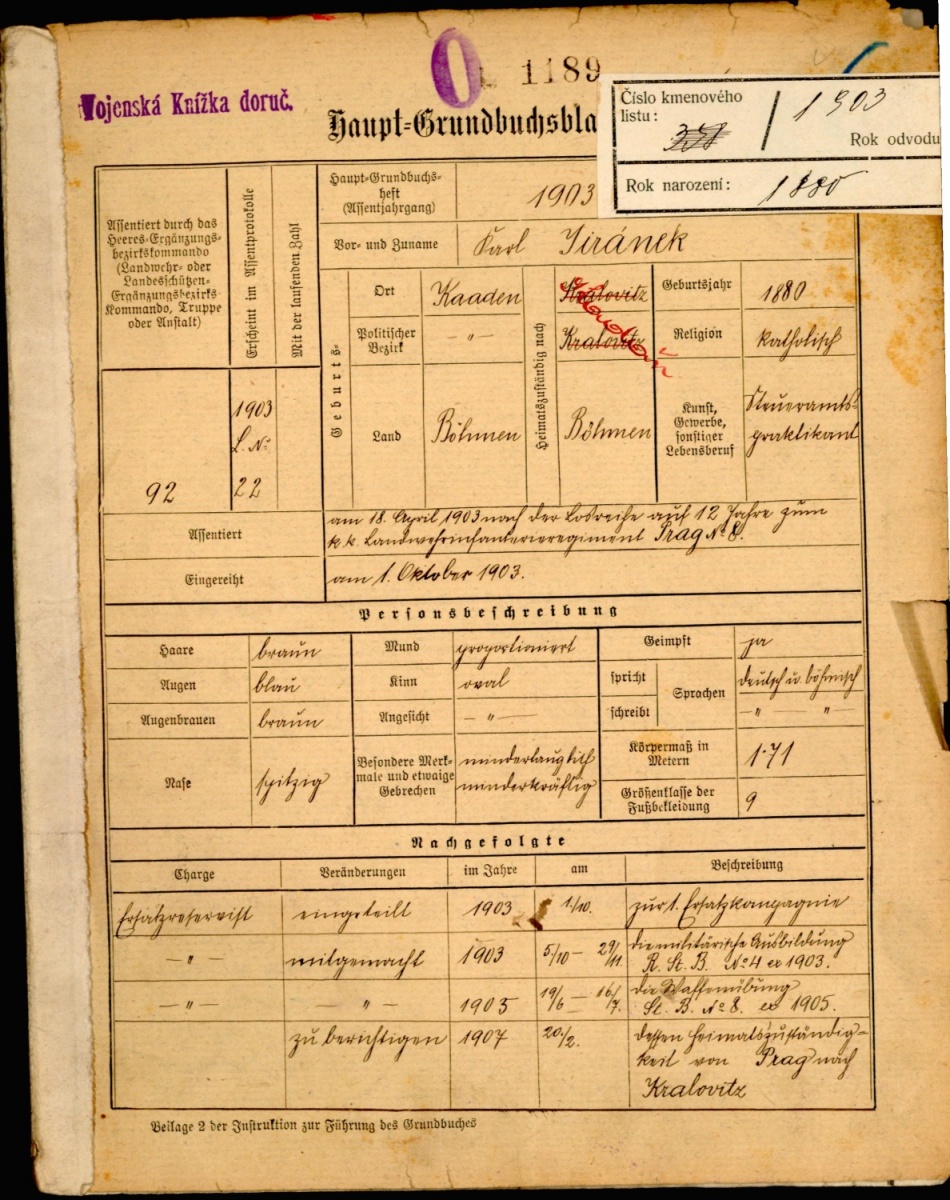 1189
Vojenská Knížka doruč.
Haupt-Grundbuchsbla
Číslo kmenového
listu:
1903
Rok odvodu
Rok narození:
1880
Assentiert durch das
Heeres-Ergänzungs-
bezirkskommando
(Landwehr- oder
Landesschützen-
Ergänzungsbezirks-
Kommando, Truppe
oder Anstalt)
92
Erscheint im Assentprotokolle
1903
L. No
22
Mit der laufenden Zahl
Haupt-Grundbuchs-
heft
(Assentjahrgang)
1903
Vor- und Zuname
Karl Jiránek
Geburts-
Ort
Kaaden
Politischer
Bezirk
— " —
Land
Böhmen
Heimatszuständig nach
Kralovitz
Kralovitz
Böhmen
Geburtsjahr
1880
Religion
katholisch
Kunst,
Gewerbe,
sonstiger
Lebensberuf
Steueramts-
praktikant
Assentiert
am 18. April 1903 nach der Losreihe auf 12 Jahre zum
k.k. Landwehrinfanterieregiment Prag No 8.
Eingereiht
am 1. Oktober 1903.
Personsbeschreibung
Haare
braun
Mund
proportioniert
Geimpft
ja
Augen
blau
Kinn
oval
spricht
Sprachen
deutsch u. böhmisch
Augenbrauen
braun
Angesicht
— " —
schreibt
— " — "
Nase
spitzig
Besondere Merk-
male und etwaige
Gebrechen
mindertauglich
minderkräftig
Körpermaß in
Metern
1·71
Größenklasse der
Fußbekleidung
9
Nachgefolgte
Charge
Veränderungen
im Jahre
am
Beschreibung
Ersatzreservist
eingeteilt
1903
1./10.
zur 1. Ersatzkompagnie
— " —
mitgemacht
1903
5/10 — 29/11.
die militärische Ausbildung
R. St. B. No 4 ex 1903.
— " —
" —
1905
19/6 — 16/7.
die Waffenübung
St. B. No 8. ex 1905.
zu berichtigen
1907
20/2.
dessen Heimatszuständig-
keit von Prag nach
Kralovitz
Beilage 2 der Instruktion zur Führung des Grundbuches